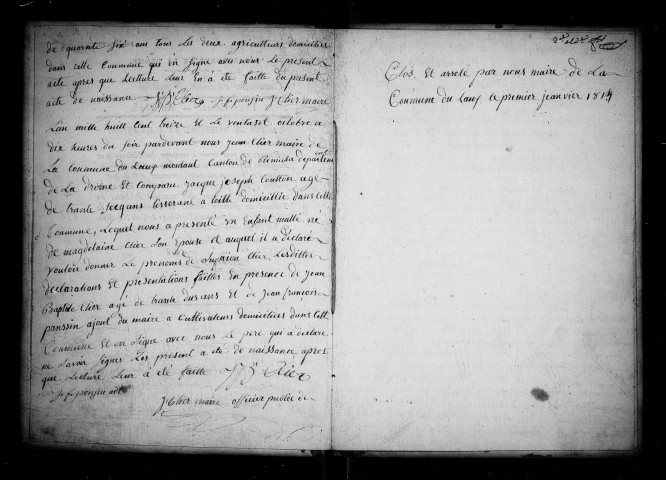 de quarnte six ans tous les deux agriculteurs domicilies
dans cette Commune qui on signe avec nous le present
acte apres que Lecture leur En à eté faitte du present
acte de naissance JJB Clier J.f. ponsin J Clier maire
L'an mille huitt cent treize et le octobre a
dix heures du soir pardevant nous jean Clier maire de
la Commune du Canton de departem
de La drome Et Comparu Jacque joseph Coulton age
de trante ans tisserant a toille domicillié dans cette
Commune, Lequel nous a presenté un Enfant malle né
de magdelaine Clier son Epouse et auquel il a déclaré
vouloir donner Le prenoms de Clier, Lesdittes
declarations Et presentations faittes En presence de Jean
Baptiste Clier agé de trante ans Et de Jean francois
ponssin ajoint du maire a Cultivateurs domicilies dans Cette
Commune Et on signe avec nous Le pere qui à declare
ne savoir signe Les present a eté de naissance apres
que Lecture leur à été faitte JJB Clier
J.f. ponsin adt
J Clier maire officier publée de
Clos Et arrete par nous maire de La
Commune du Laux le premier janvier 1814